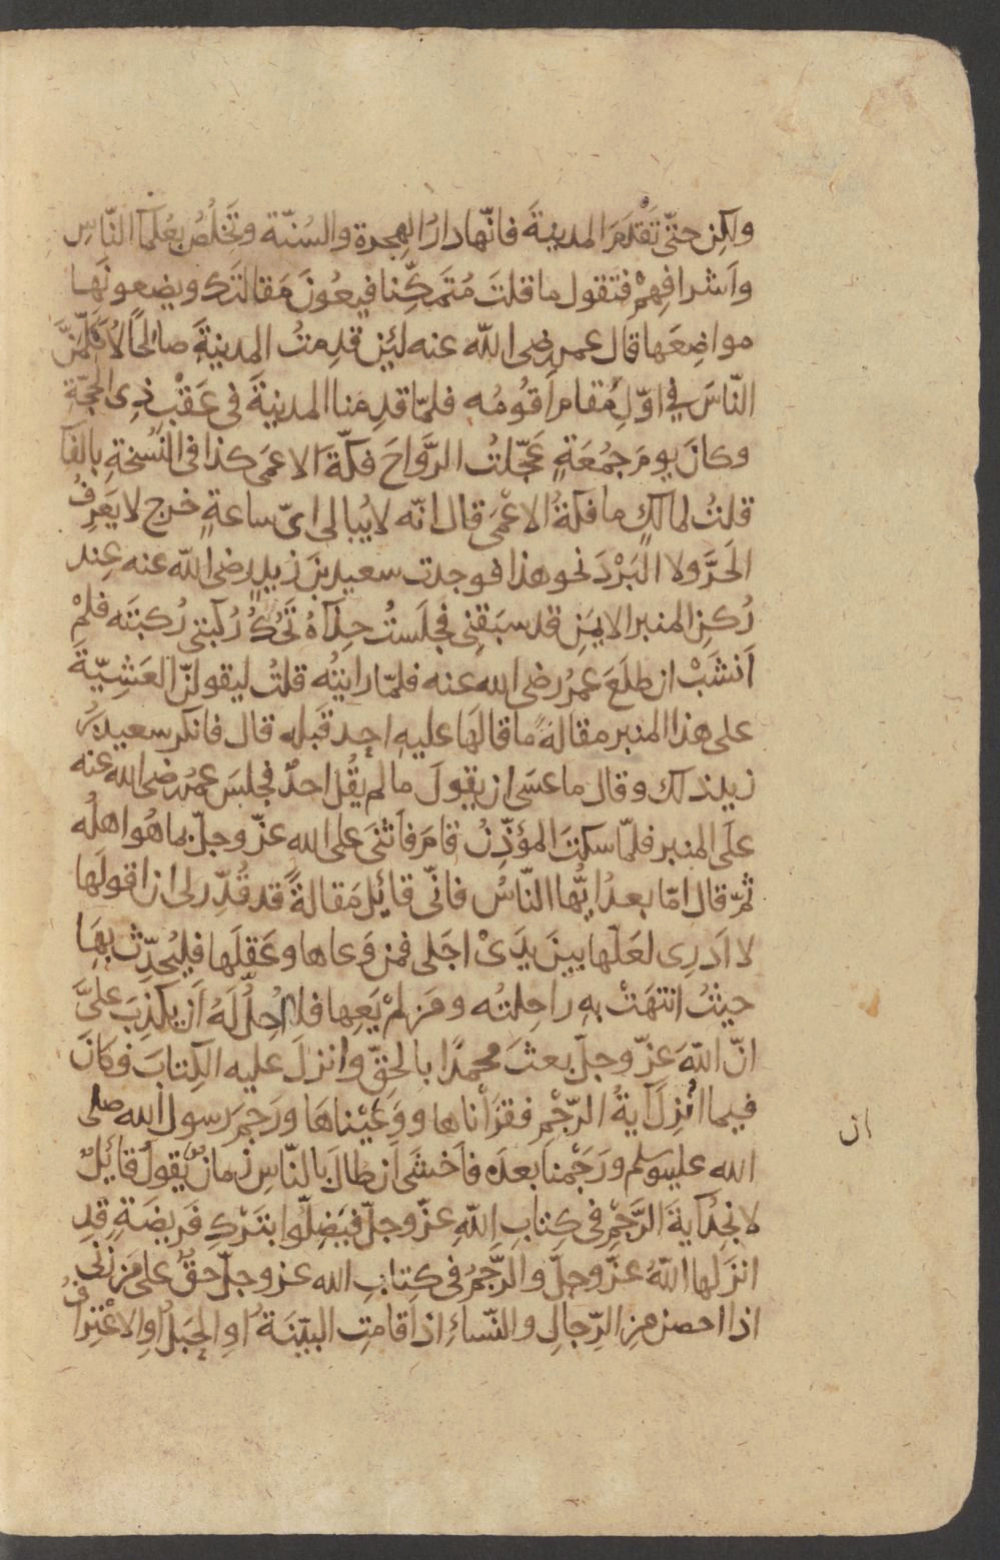 ولكِن حتّى تَقْدَمَ المدينةَ فانّها دارُ الهِجرة والسُنّة وتَخْلُصُ بعُلمآ النّاسِ
واَشرافِهِمْ فتَقول ما قلتَ مُتَمَكِّنا فيعُونَ مَقالتَك ويضعونَها
مواضِعَها قال عمر رضى الله عنه لئِن قدِمتُ المدينةَ صالحًا لاُكَلِّمَنَّ
النّاسَ فى اوّلِ مُقامٍ اَقُومُه فلمّا قدِمَنا المدينةَ فى عَقْبِ ذِى الحجّةِ
وكانَ يومَ جُمُعَةٍ عَجّلتُ الرَّوَاحَ فكّةَ الاعمَى كذا فى النُسْخةِ بالفآ
قلتُ لمالكٍ ما فكّةُ الاعْمَى قال انّه لا يُبالى اىّ ساعةٍ خرج لا يَعرِفُ
الحَرَّ ولا البَرْدَ نحو هذا فوجدت سعيدَ بنَ زيدٍ رضى الله عنه عِند
رُكنِ المنبر الايمَنِ قد سبَقنِى فجلَستُ حِذآهُ تَحُكُّ رُكبتى رُكبتَه فلمْ
اَنشَبْ ان طلَعَ عمرُ رضى الله عنه فلمّا رايتُه قلتُ ليقولنّ العَشِيّةَ
على هذا المنبر مقالةً ما قالهَا عليه احد قبَله قال فانكر سعيد بنُ
زيد ذلك وقال ما عسَى ان يقولَ ما لم يَقُل احدٌ فجلسَ عمرُ رضى الله عنه
علَى المنبر فلمّا سكتَ المؤذِّنُ قامَ فاَثنَى على الله عزّ وجلّ بما هُو اهلُه
ثمّ قال امّا بعدُ ايّها النّاسُ فانّى قائِل مَقالةً قد قُدِّر لى ان اقولَها
لا ادرِى لعَلّها بينَ يدَىْ اجَلى فمن وَعاها وعَقلَها فليُحدّث بهَا
حيثُ انتهَتْ بهِ راحِلتُه ومَن لمْ يَعِها فلا اُحِلُّ لَهُ اَن يكذِبَ علىَّ
انّ اللهَ عزّ وجلّ بعثَ محمدًا بالحقّ وانزلَ عليه الكِتابَ فوكانَ
فيما اُنزِلَ آيةُ الرّجْمِ فقرَأناها ووَعَيْناها ورَجمَ رسول الله صلى
الله عليه وسلم ورَجَمْنا بعدَه فاَخشَى ان طالَ بالنّاسِ زمانٌ يقولُ قائِلٌ
ان
لا نجِدُ آيةَ الرَّجْمِ فى كِتابِ اللهِ عزّ وجلّ فيَضِلّوا بتَركِ فَريضَةٍ قد
انزَلها اللهُ عزّ وجلّ والرَّجمُ فى كِتابِ الله عز وجلّ حقٌ على مَن زنَى
اذا احصن مِن الرِّجالِ والنّساءِ اذا قامتِ البيّنَةُ اوِ الحَبَلُ اوِ الاعْتِرافُ